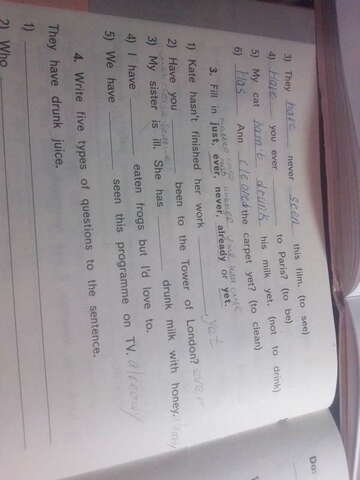 3) They have never seen this film. (to see)
4) Have you ever to Paris? (to be)
5) My cat hasn't drunk his milk yet. (not to drink)
6) Has Ann cleaned the carpet yet? (to clean)
3. Fill in just, ever, never, already or yet.
1) Kate hasn't finished her work yet
2) Have you been to the Tower of London? ever
3) My sister is ill. She has drunk milk with honey.
4) I have eaten frogs but I'd love to.
5) We have seen this programme on TV. already
4. Write five types of questions to the sentence.
They have drunk juice.
1)
2) Who
Do: